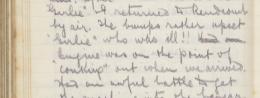 "Girlie" & returned to Kendcourt
by air. The bumps rather upset
"Girlie" who was ill!! Had an
Engine was on the point of
"conking" out when we arrived.
Had an awful battle to get